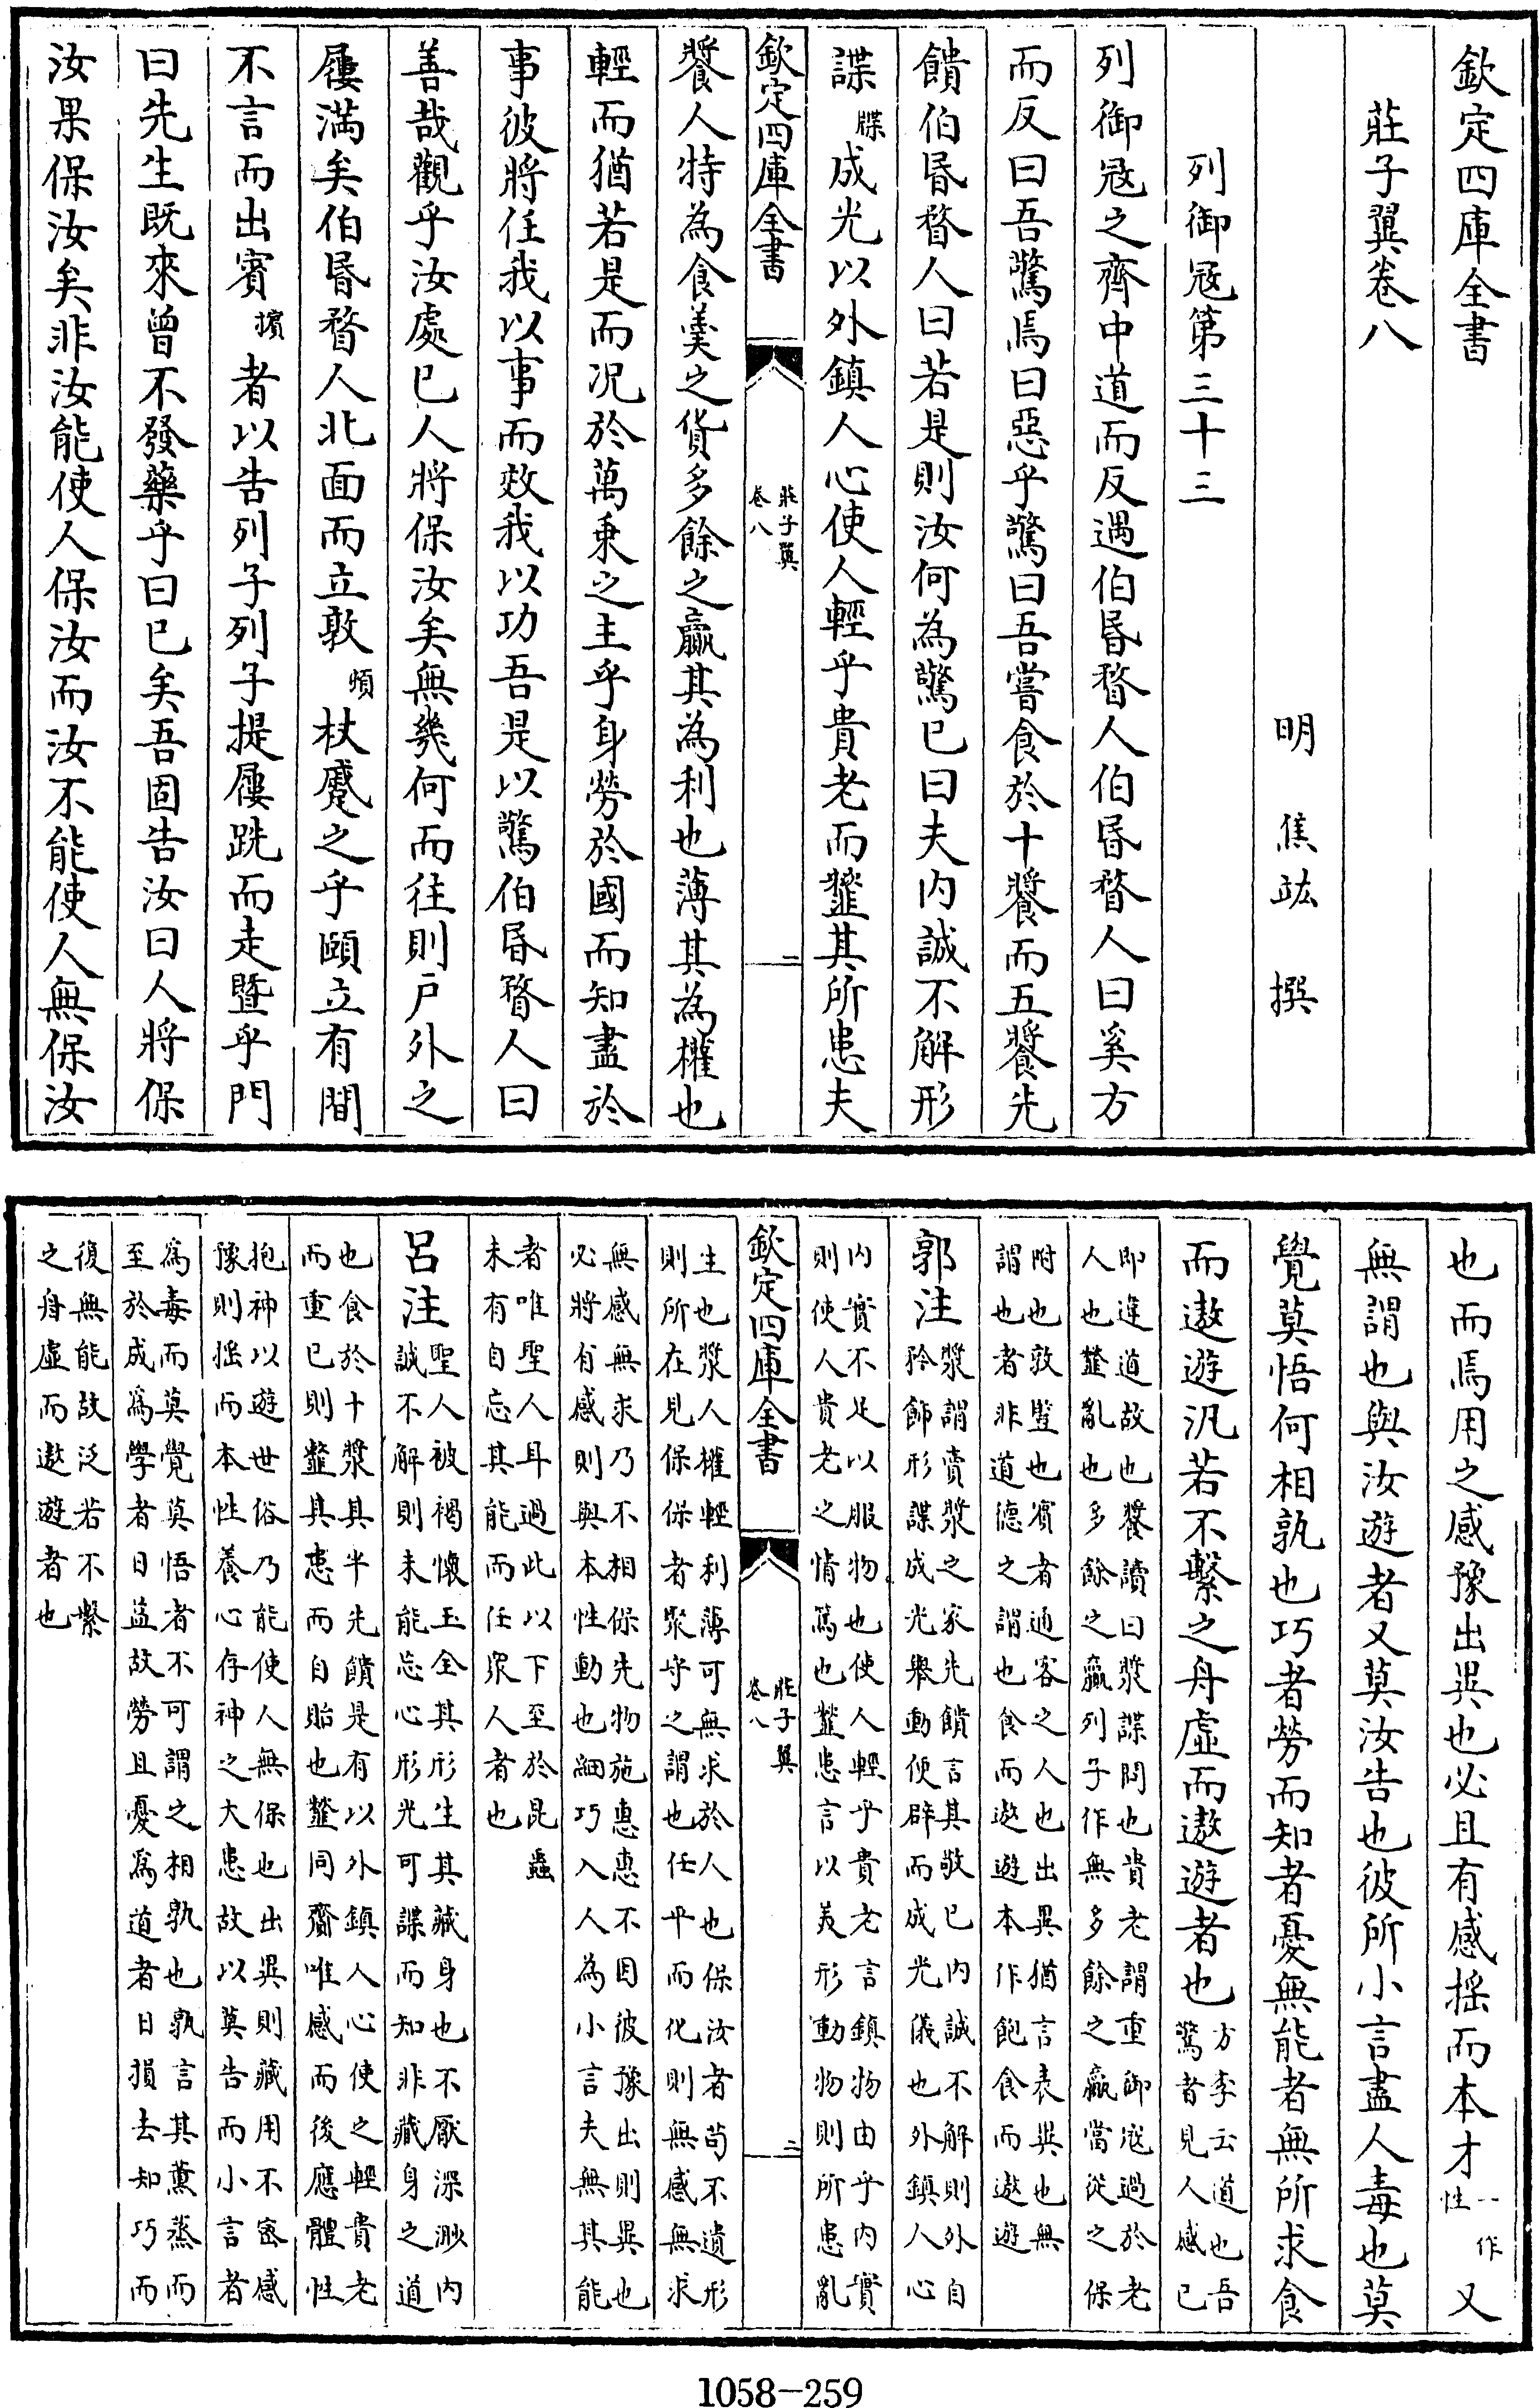 欽定四庫全書
莊子翼卷八
明 焦竑 撰
列御寇第三十三
列御寇之齊中道而反遇伯昬瞀人伯昬瞀人曰奚方
而反曰吾驚焉曰惡乎驚曰吾嘗食於十饗而五饗先
饋伯昬瞀人曰若是則汝何為驚已曰夫内誠不解形
諜牒成光以外鎮人心使人輕乎貴老而韲其所患夫
欽定四庫全書
莊子翼
卷八
一
饗人特為食羹之貨多餘之贏其為利也薄其為權也
輕而猶若是而况於萬乗之主乎身勞於國而知盡於
事彼將任我以事而效我以功吾是以驚伯昬瞀人曰
善哉觀乎汝處已人將保汝矣無幾何而往則户外之
屨滿矣伯昬瞀人北面而立敦頓杖蹙之乎頤立有間
不言而出賓擯者以告列子列子提屨跣而走暨乎門
曰先生既來曾不發藥乎曰已矣吾固告汝曰人將保
汝果保汝矣非汝能使人保汝而汝不能使人無保汝
也而焉用之感豫出異也必且有感揺而本才一作性又
無謂也與汝遊者又莫汝告也彼所小言盡人毒也莫
覺莫悟何相孰也巧者勞而知者憂無能者無所求食
而遨遊汎若不繫之舟虚而遨遊者也方李云道也吾
驚者見人感已
即進道故也饗讀曰漿諜問也貴老謂重御寇過於老
人也韲亂也多餘之贏列子作無多餘之贏當從之保
附也敦豎也賓者通客之人也出異猶言表異也無
謂也者非道德之謂也食而遨遊本作飽食而遨遊
郭注漿謂賣漿之家先饋言其敬已内誠不解則外自
矜飾形諜成光舉動便辟而成光儀也外鎮人心
内實不足以服物也使人輕乎貴老言鎮物由乎内實
則使人貴老之情篤也韲患言以美形動物則所患亂
欽定四庫全書
莊子翼
卷八
二
生也漿人權輕利薄可無求於人也保汝者苟不遺形
則所在見保保者聚守之謂也任平而化則無感無求
無感無求乃不相保先物施惠惠不因彼豫出則異也
必將有感則與本性動也細巧入人為小言夫無其能
者唯聖人耳過此以下至於昆蟲
未有自忘其能而任衆人者也
呂注聖人被褐懷玉全其形生其藏身也不厭深渺内
誠不解則未能忘心形光可諜而知非藏身之道
也食於十漿其半先饋是有以外鎮人心使之輕貴老
而重已則韲其患而自貽也韲同齎唯感而後應體性
抱神以遊世俗乃能使人無保也出異則藏用不宻感
豫則揺而本性養心存神之大患故以莫告而小言者
爲毒而莫覺莫悟者不可謂之相孰也孰言其薫蒸而
至於成爲學者日益故勞且憂爲道者日損去知巧而
復無能故泛若不繫
之舟虚而遨遊者也
1058-259